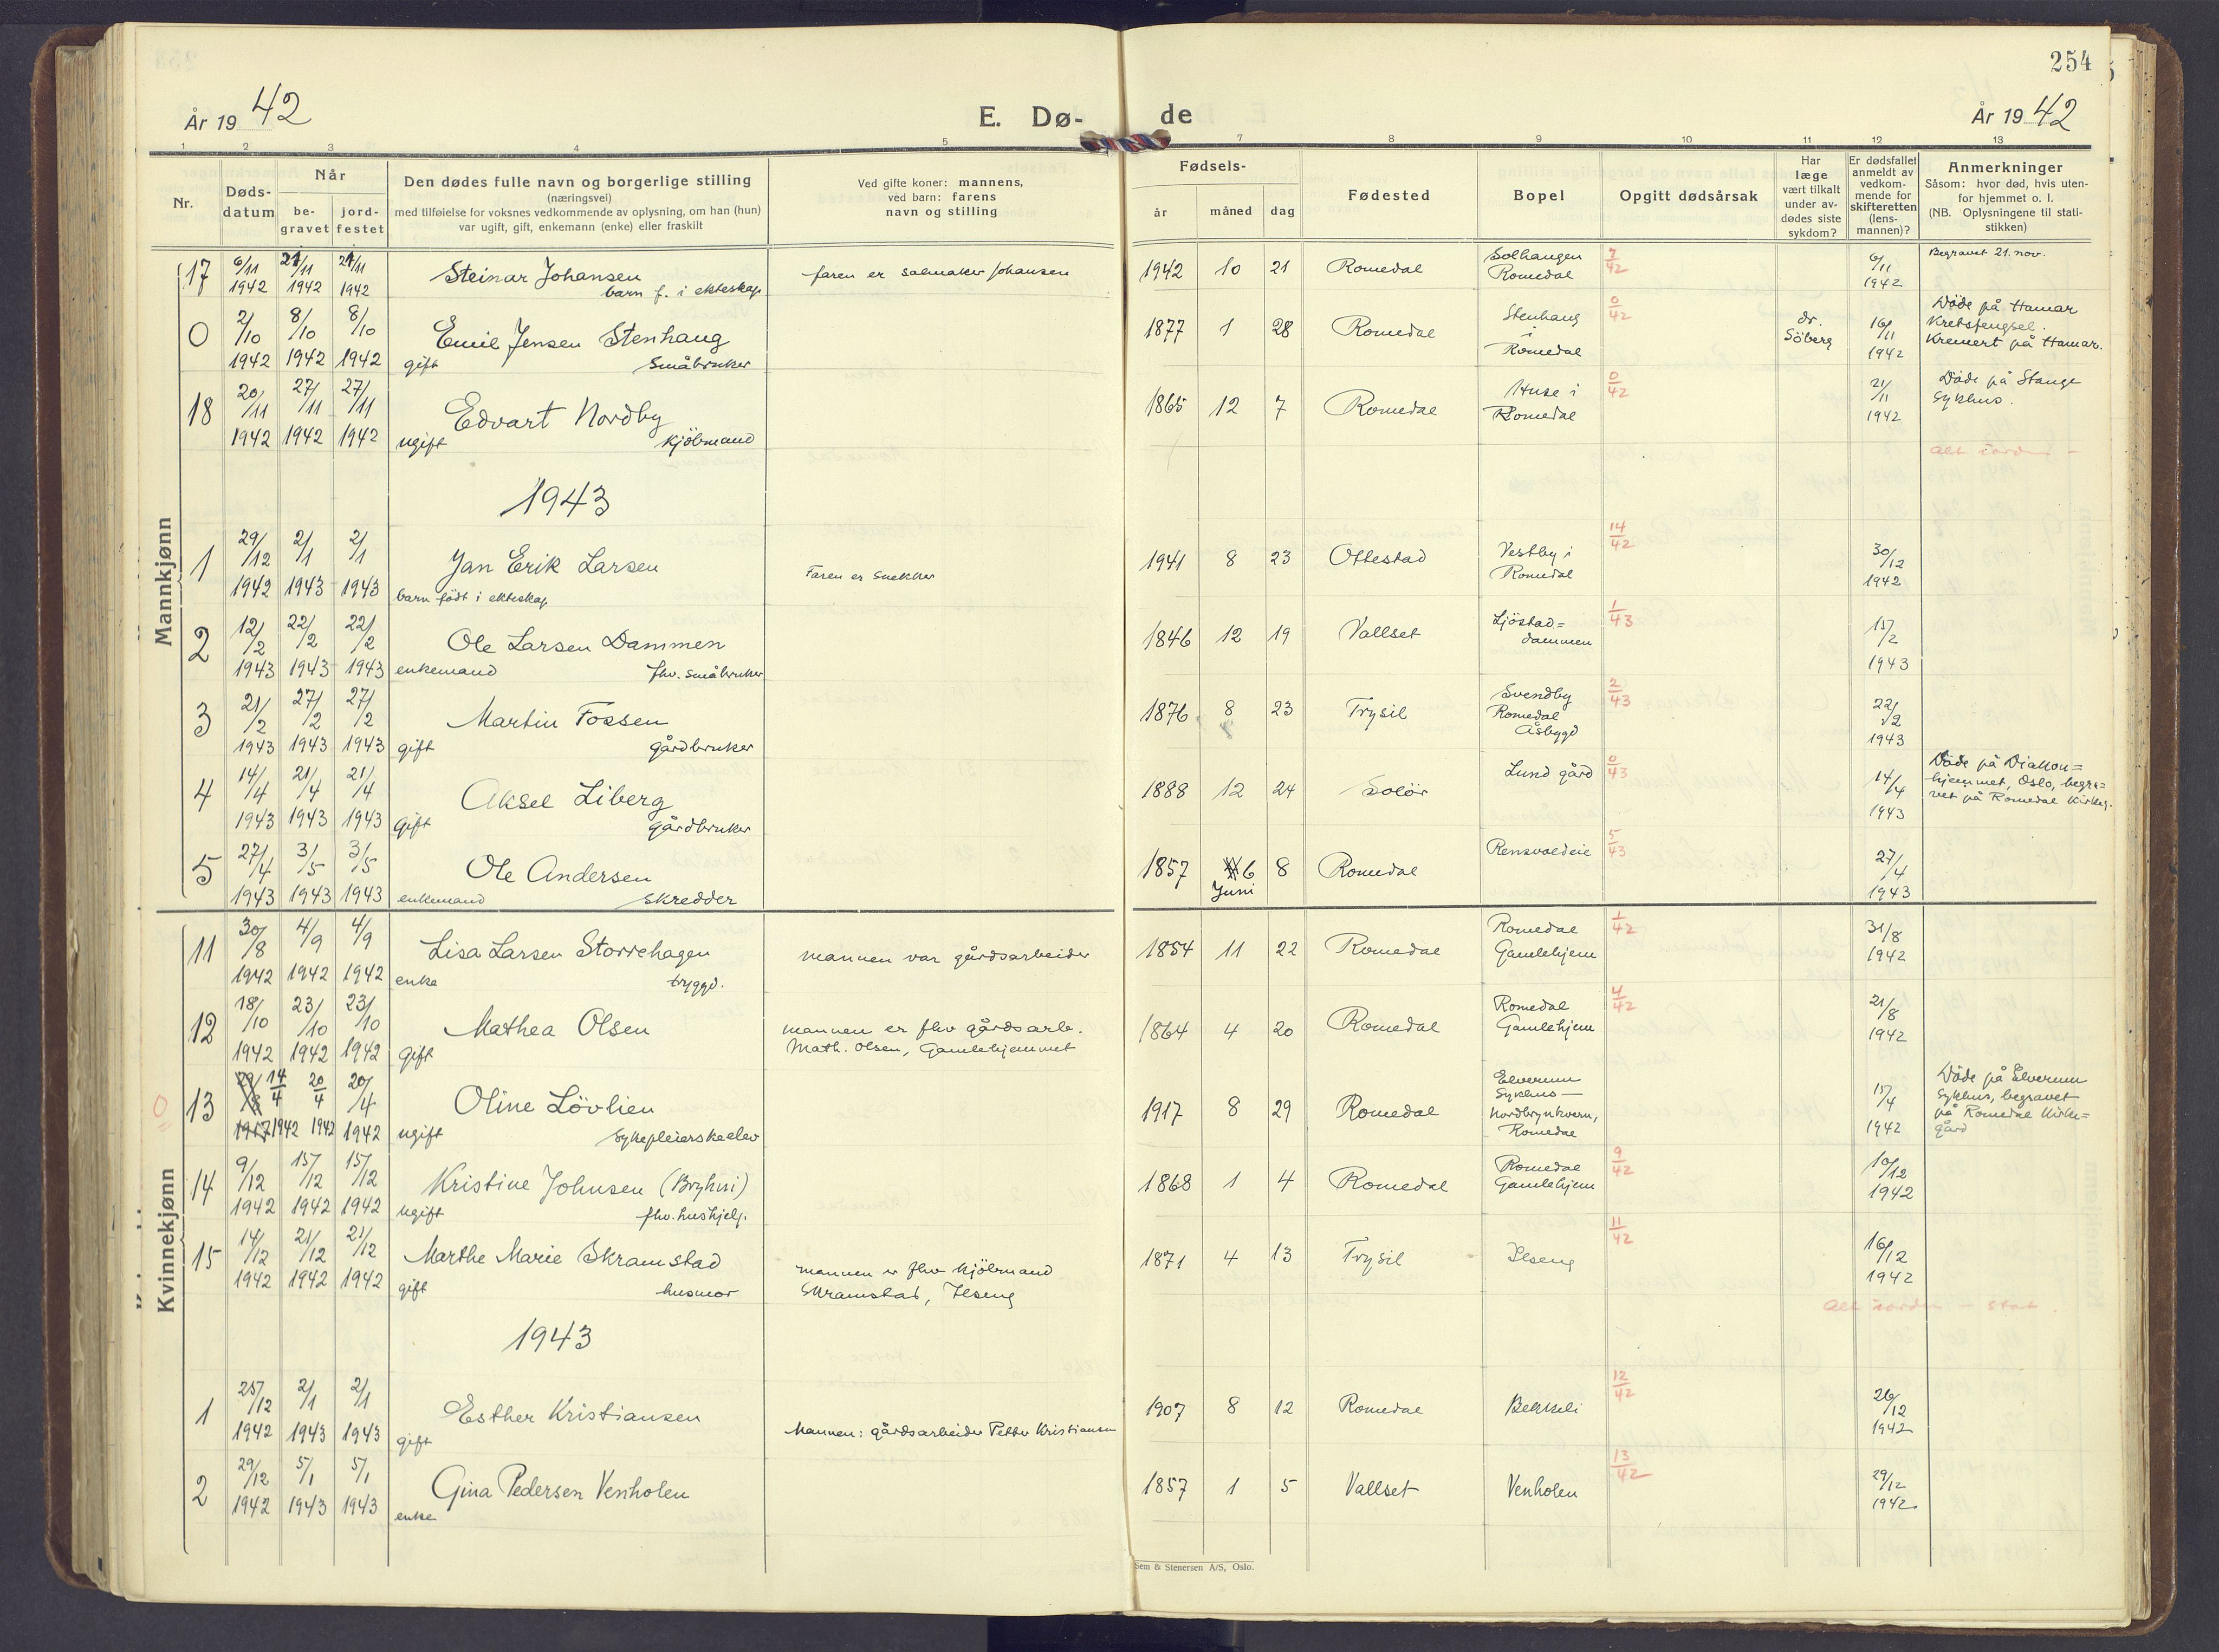 254
År 1942
E. Dø-
de
År 1942
1 2 3 4 5 7 8 9 10 11 12 13
Nr.
Døds-
datum
Når
be-
gravet
jord-
festet
Den dødes fulle navn og borgerlige stilling
(næringsvei)
med tilføielse for voksnes vedkommende av oplysning, om han (hun)
var ugift, gift, enkemann (enke) eller fraskilt
Ved gifte koner: mannens,
ved barn: farens
navn og stilling
Fødsels-
år måned dag
Fødested
Bopel
Opgitt dødsårsak
Har
læge
vært tilkalt
under av-
dødes siste
sykdom?
Er dødsfallet
anmeldt av
vedkom-
mende for
skifteretten
(lens-
mannen)?
Anmerkninger
Såsom: hvor død, hvis uten-
for hjemmet o. l.
(NB. Oplysningene til stati-
stikken)
Mannkjønn
17 6/11 1942 21/11 1942 21/11 1942
Steinar Johansen
barn f. i ekteskap
faren er salmaker Johansen
1942 10 21 Romedal
Solhaugen
Romedal
7/42
6/11 1942
Begravet 21. nov.
0 2/10 1942 8/10 1942 8/10 1942
Emil Jensen Stenhaug
gift Småbruker
1877 1 28 Romedal
Stenhaug
i
Romedal
0/42
dr.
Söberg
16/11 1942
Döde på Hamar
Kretsfengsel.
Kremert på Hamar.
18 20/11 1942 27/11 1942 27/11 1942
Edvart Nordby
ugift kjöbmand
1865 12 7 Romedal
Huse i
Romedal
0/42
21/11 1942
Döde på Stange
Sykhus.
1943
1 29/12 1942 2/1 1943 2/1 1943
Jan Erik Larsen
barn födt i ekteskap
Faren er snekker
1941 8 23 Ottestad
Vestby i
Romedal
14/42
30/12 1942
2 12/2 1943 22/2 1943 22/2 1943
Ole Larsen Dammen
enkemand fhv. småbruker
1846 12 19 Vallset
Ljöstad=
dammen
1/43
15/2 1943
3 21/2 1943 27/2 1943 27/2 1943
Martin Fossen
gift gårdbruker
1876 8 23 Trysil
Svendby
Romedal
Åsbygd
2/43
22/2 1943
4 14/4 1943 21/4 1943 21/4 1943
Aksel Liberg
gift gårdbruker
1888 12 24 Solör
Lund gård
0/43
14/4 1943
Döde på Diakon=
hjemmet, Oslo, begra=
vet på Romedal Kirkeg.
5 27/4 1943 3/5 1943 3/5 1943
Ole Andersen
enkemand skredder
1857 6 8 Romedal
Juni
Rensvoldeie
5/43
27/4 1943
Kvinnekjønn
11 30/8 1942 4/9 1942 4/9 1942
Lisa Larsen Storrehagen
enke trygd.
mannen var gårdsarbeider
1854 11 22 Romedal
Romedal
Gamlehjem
1/42
31/8 1942
12 18/10 1942 23/10 1942 23/10 1942
Mathea Olsen
gift
mannen er fhv gårdsarb.
Math. Olsen, Gamlehjemmet
1864 4 20 Romedal
Romedal
Gamlehjem
4/42
21/8 1942
0
13 14/4 1942 20/4 1942 20/4 1942
Oline Lövlien
ugift Sykepleierskeelev
1917 8 29 Romedal
Elverum
Sykhus —
Nordbrynkvern,
Romedal
15/4 1942
Döde på Elverum
Sykhus, begravet
på Romedal Kirke=
gård
14 9/12 1942 15/12 1942 15/12 1942
Kristine Johnsen (Bryhni)
ugift fhv. hushjelp.
1868 1 4 Romedal
Romedal
Gamlehjem
9/42
10/12 1942
15 14/12 1942 21/12 1942 21/12 1942
Marthe Marie Skramstad
gift husmor
mannen er fhv kjöbmand
Skramstad, Ilseng
1871 4 13 Trysil
Ilseng
11/42
16/12 1942
1943
1 25/12 1942 2/1 1943 2/1 1943
Esther Kristiansen
gift
Mannen: gårdsarbeider Petter Kristiansen
1907 8 12 Romedal
Bekkeli
12/42
26/12 1942
2 29/12 1942 5/1 1943 5/1 1943
Gina Pedersen Venholen
enke
1857 1 5 Vallset
Venholen
13/42
29/12 1942
Sem & Stenersen A/S, Oslo.